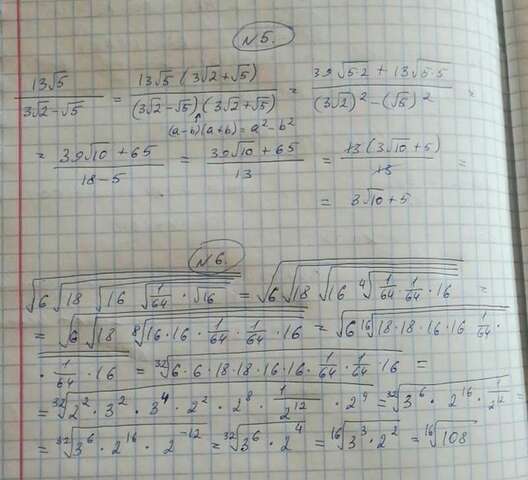 N5.
13√5 / (3√2-√5) = 13√5 (3√2+√5) / ((3√2-√5)(3√2+√5)) = (39√5·2 + 13√5·5) / ((3√2)² - (√5)²) =
(a-b)(a+b) = a²-b²
= (39√10 + 65) / (18-5) = (39√10 + 65) / 13 = 13(3√10+5) / 13 =
= 3√10+5
N6.
√6 √18 √16 √1/64 · √16 = √6 √18 √16 ⁴√1/64 · 1/64 · 16 =
= √6 √18 ⁸√16·16· 1/64 · 1/64 · 16 = √6 ¹⁶√18·18·16·16 1/64 ·
· 1/64 · 16 = ³²√6·6·18·18·16·16· 1/64 · 1/64 · 16 =
= ³²√2²·3²·3⁴·2²·2⁸· 1/2¹² · 2⁴ = ³²√3⁶·2¹⁶· 1/2¹² =
= ³²√3⁶·2¹⁶·2⁻¹² = ³²√3⁶·2⁴ = ¹⁶√3³·2² = ¹⁶√108